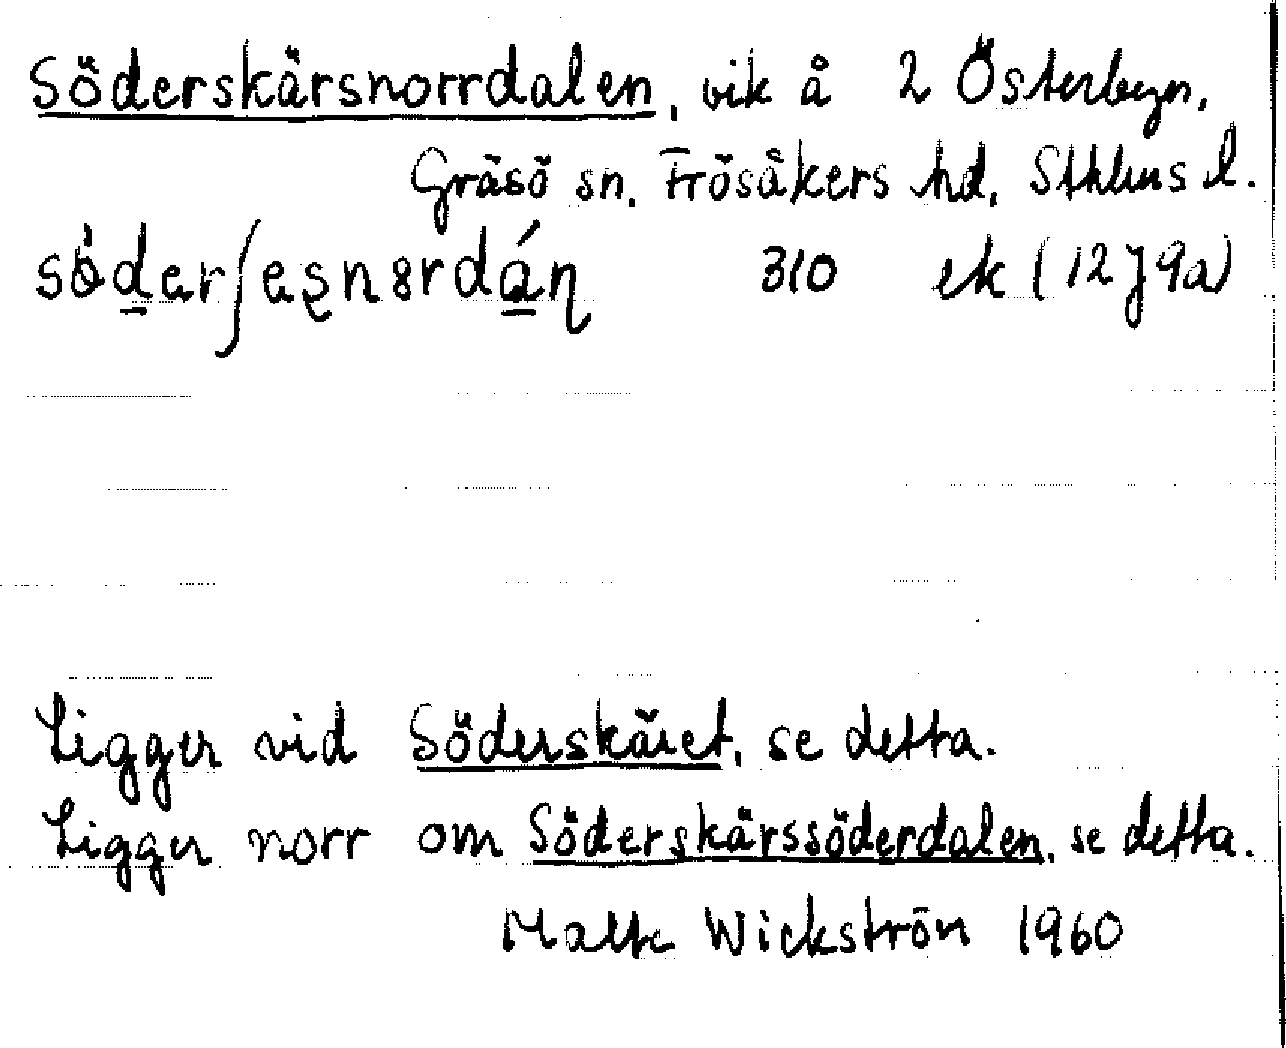 Söderskärsnorrdalen, vik å 2 Österbyn,
Gräsö sn. Frösåkers hd, Sthlms l.
sö̀derʃeʂnordán 310 ek (12J9a)
Ligger vid Söderskäret, se detta.
Ligger norr om Söderskärssöderdalen, se detta.
Malte Wickström 1960